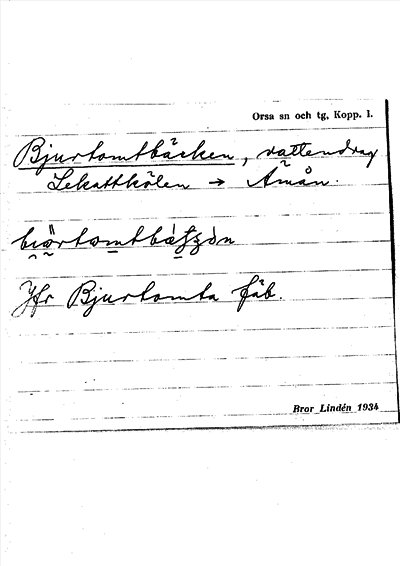 Orsa sn och tg, Kopp. l.
Bjurtomtbäcken, vattendrag
Lekattkölen → Åmån.
Jfr Bjurtomta fäb.
Bror Lindén 1934